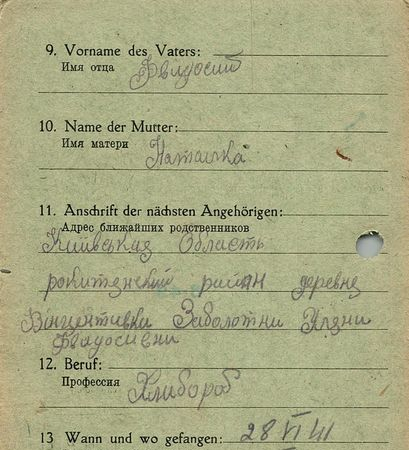 9. Vorname des Vaters:
Имя отца Феодосий
10. Name der Mutter:
Имя матери
Наталка
11. Anschrift der nächsten Angehörigen:
Адрес ближайших родственников
Київская Область
рокитянский район деревня
Винцентивка Заболотни Уляни
Федосивни
12. Beruf:
Профессия
Хлибороб
13 Wann und wo gefangen: 28 VI 41